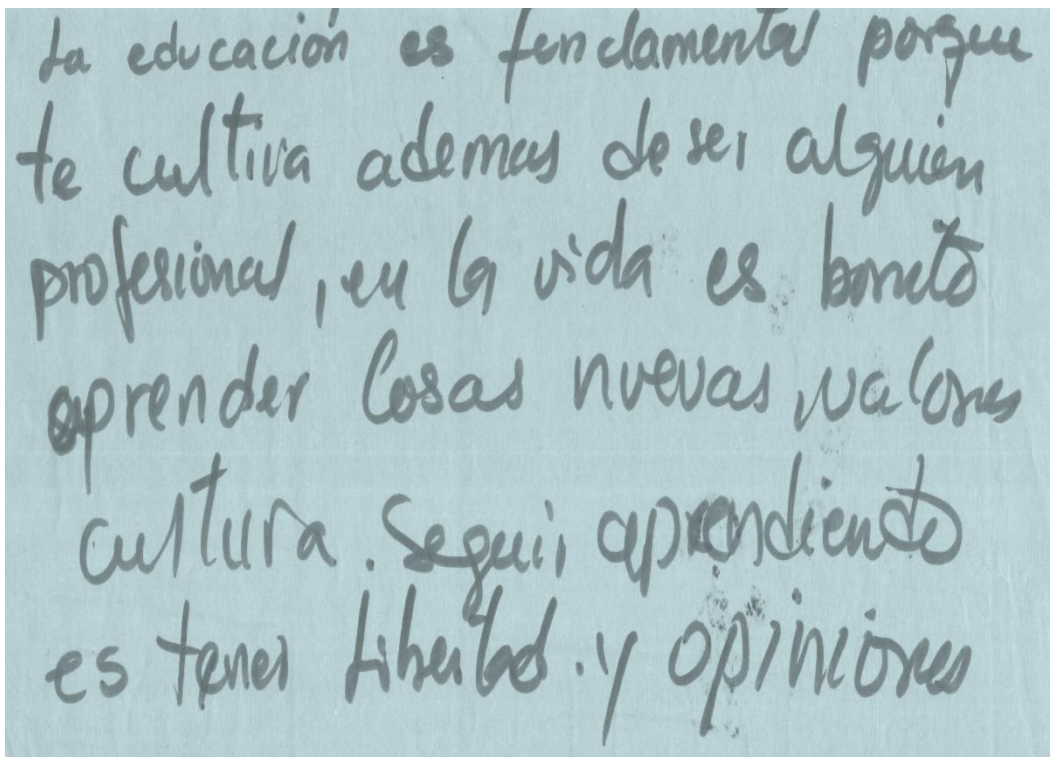 La educación es fundamental porque
te cultiva ademas de ser alguien
profesional, en la vida es bonito
aprender cosas nuevas, valores
cultura. Seguir aprendiendo
es tener Libertad. y opiniones